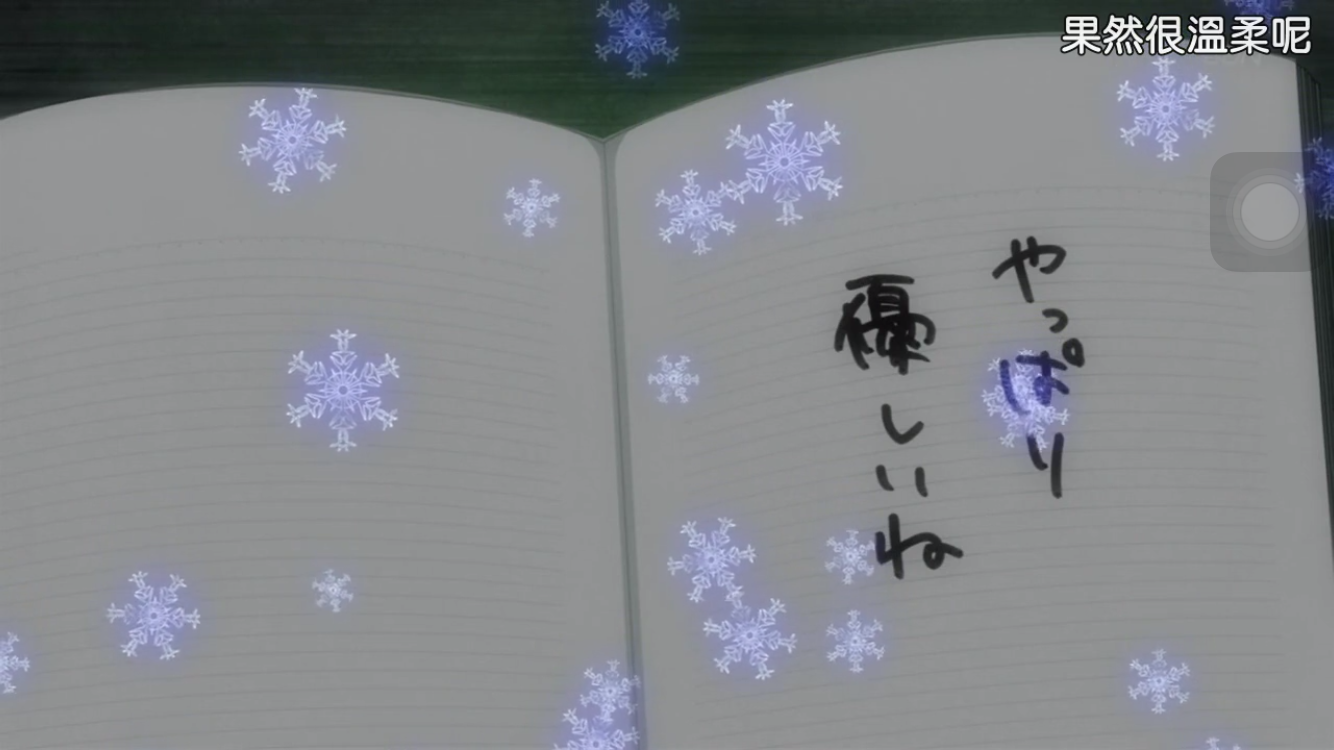 果然很溫柔呢
やっぱり
優しいね